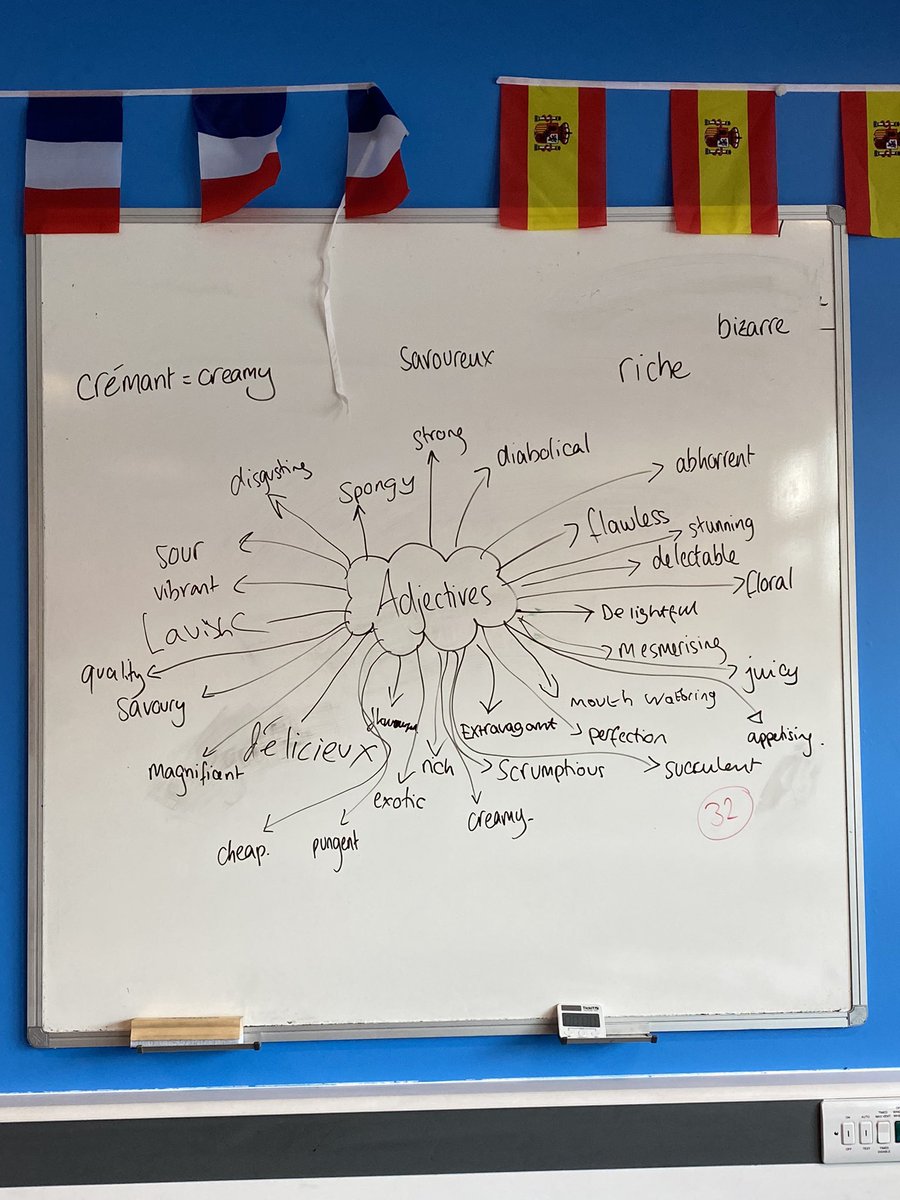 bizarre
savoureux
riche
crémant = creamy
strong
diabolical
disgusting
spongy
abhorrent
flawless
stunning
sour
delectable
vibrant
floral
Adjectives
Delightful
Lavish
mesmerising
quality
juicy
savoury
mouth watering
délicieux
Extravagant
perfection
appetising.
magnificent
rich
scrumptious
succulent
exotic
creamy
32
cheap.
pungent